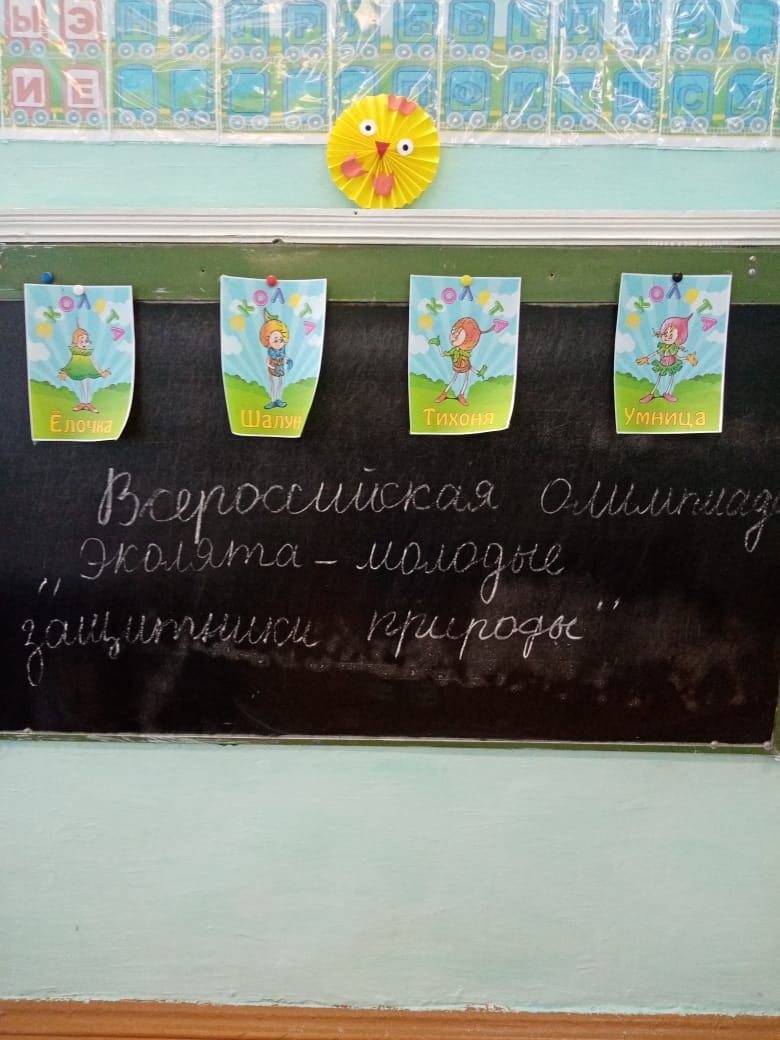 Ы Э
И Е
ЭКОЛЯТА
Ёлочка
ЭКОЛЯТА
Шалун
ЭКОЛЯТА
Тихоня
ЭКОЛЯТА
Умница
Всероссийская олимпиад
"Эколята – молодые
защитники природы"